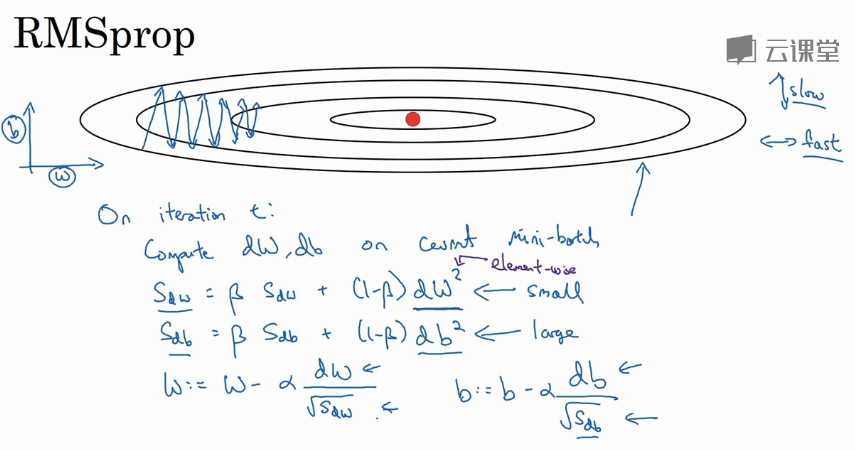 RMSprop
云课堂
slow
fast
b
w
On iteration t:
Compute dW, db on current mini-batch
element-wise
S_dw = β S_dw + (1-β) dW² ← small
S_db = β S_db + (1-β) db² ← large
W := W - α dW / √S_dw
b := b - α db / √S_db